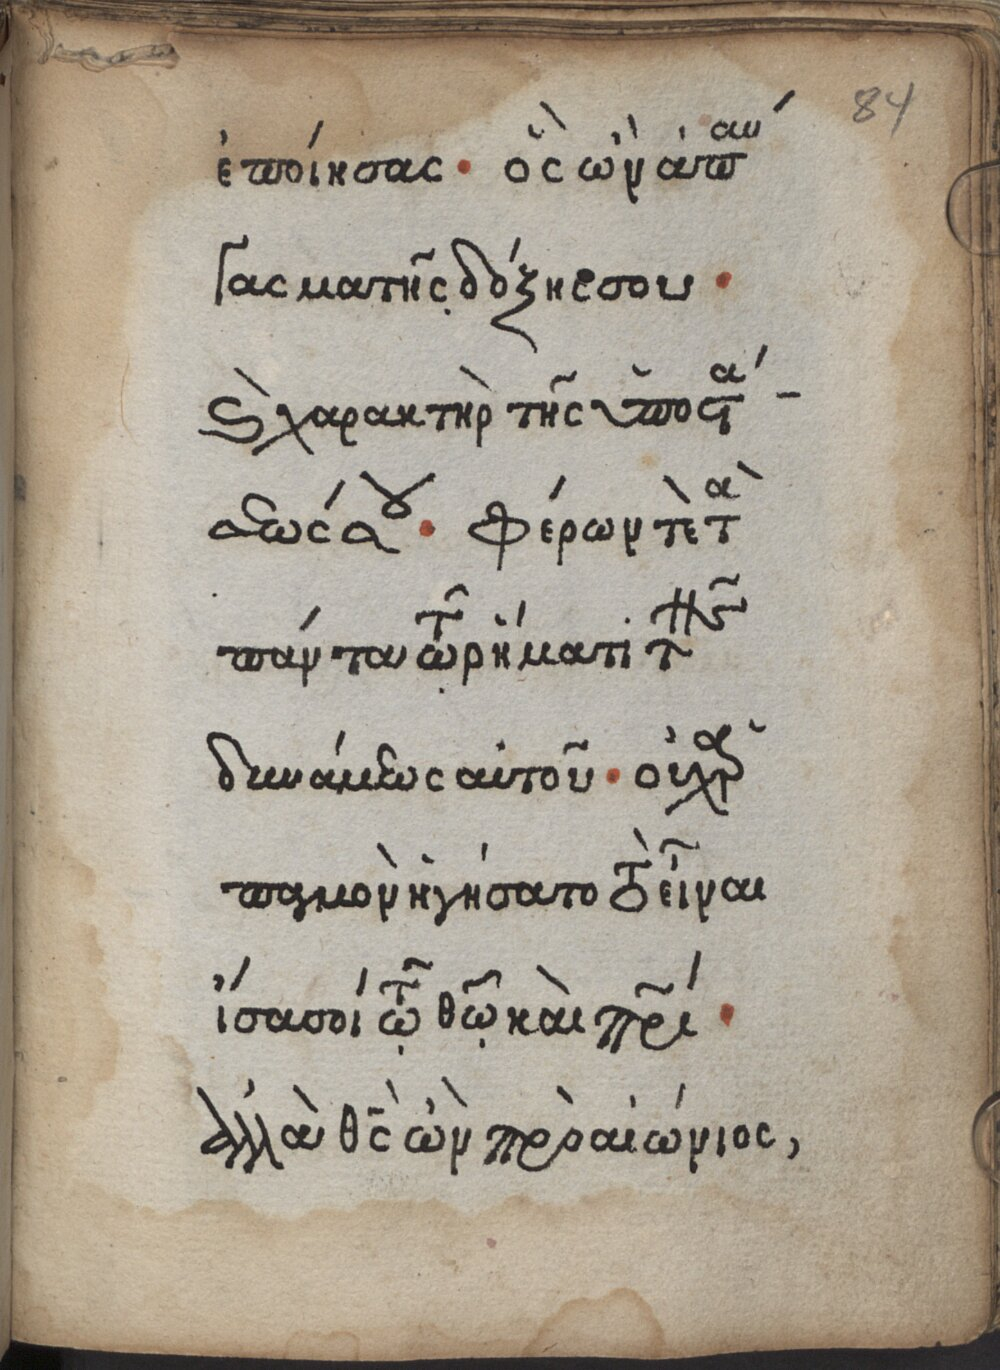 84
ἐποίησας· ὃς ὢν ἀπαύ
γασμα τῆς δόξης σου·
καὶ χαρακτὴρ τῆς ὑποστά-
σεώς σου· φέρων τὲ τὰ
πάντα τῷ ῥήματι τῆς
δυνάμεως αὐτοῦ· οὐχ ἁρ
παγμὸν ἡγήσατο τὸ εἶναι
ἴσα σοί τῷ θῶ καὶ πρί·
ἀλλὰ θς ὢν προαιώνιος,